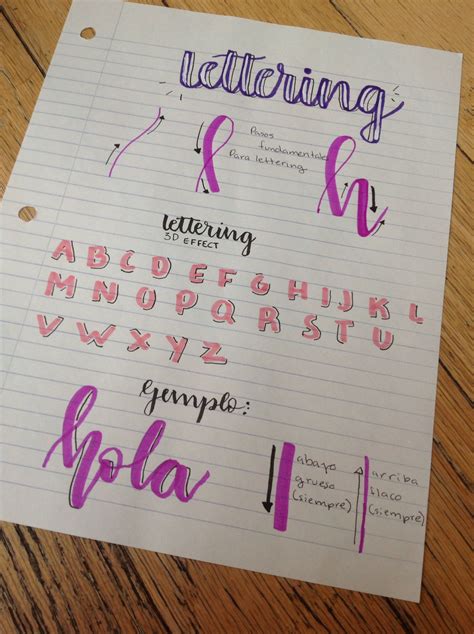 lettering
l
h
Pasos
fundamentales
Para lettering
lettering
3D EFFECT
A B C D E F G H I J K L
M N O P Q R S T U
V W X Y Z
Ejemplo:
hola
abajo
grueso
(siempre)
arriba
flaco
(siempre)